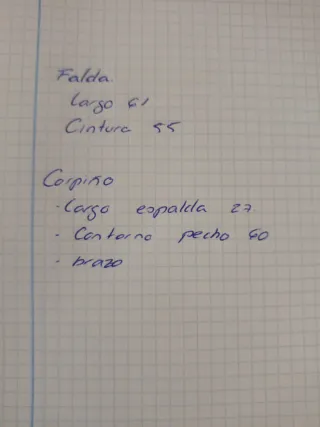 Falda
Largo 61
Cintura 55
Corpiño
- Largo espalda 27
- Contorno pecho 60
- brazo